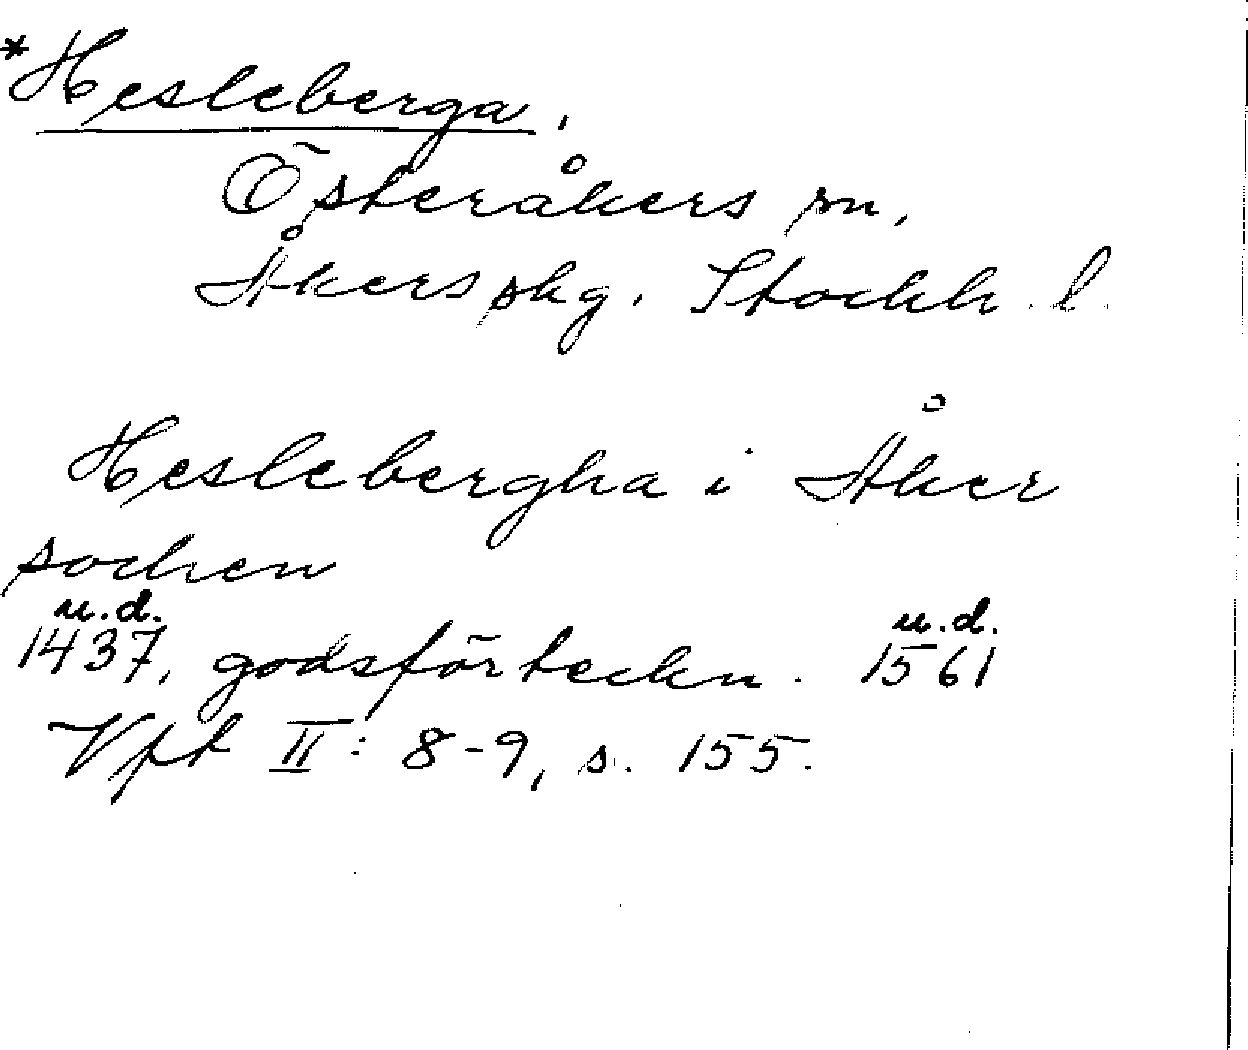 *Hesleberga,
Österåkers sn,
Åkers skg. Stockh. l.
Heslebergha i Åker
socken
u.d. u.d.
1437, godsförteckn. 1561
Vft II: 8-9, s. 155.